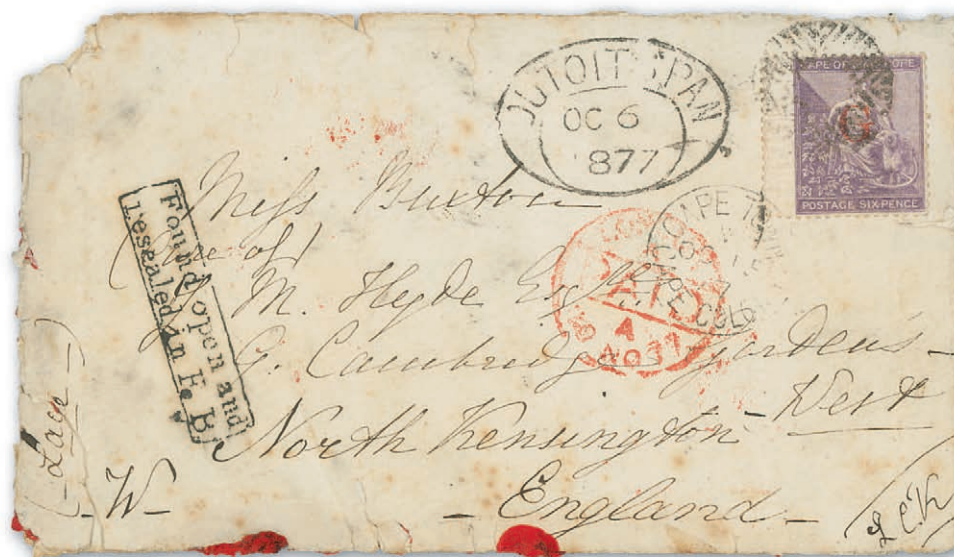 DUTOITSPAN
OC 6
1877
CAPE OF GOOD HOPE
G
POSTAGE SIX PENCE
CAPE TOWN
OC 15
CAPE COLONY
PAID
A
NO 37
Found open and
resealed in F. B.
Miss Buxton
Care of
M. Hyde Esqre
9. Cambridge Gardens -
North Kensington - West
- W -
- England -